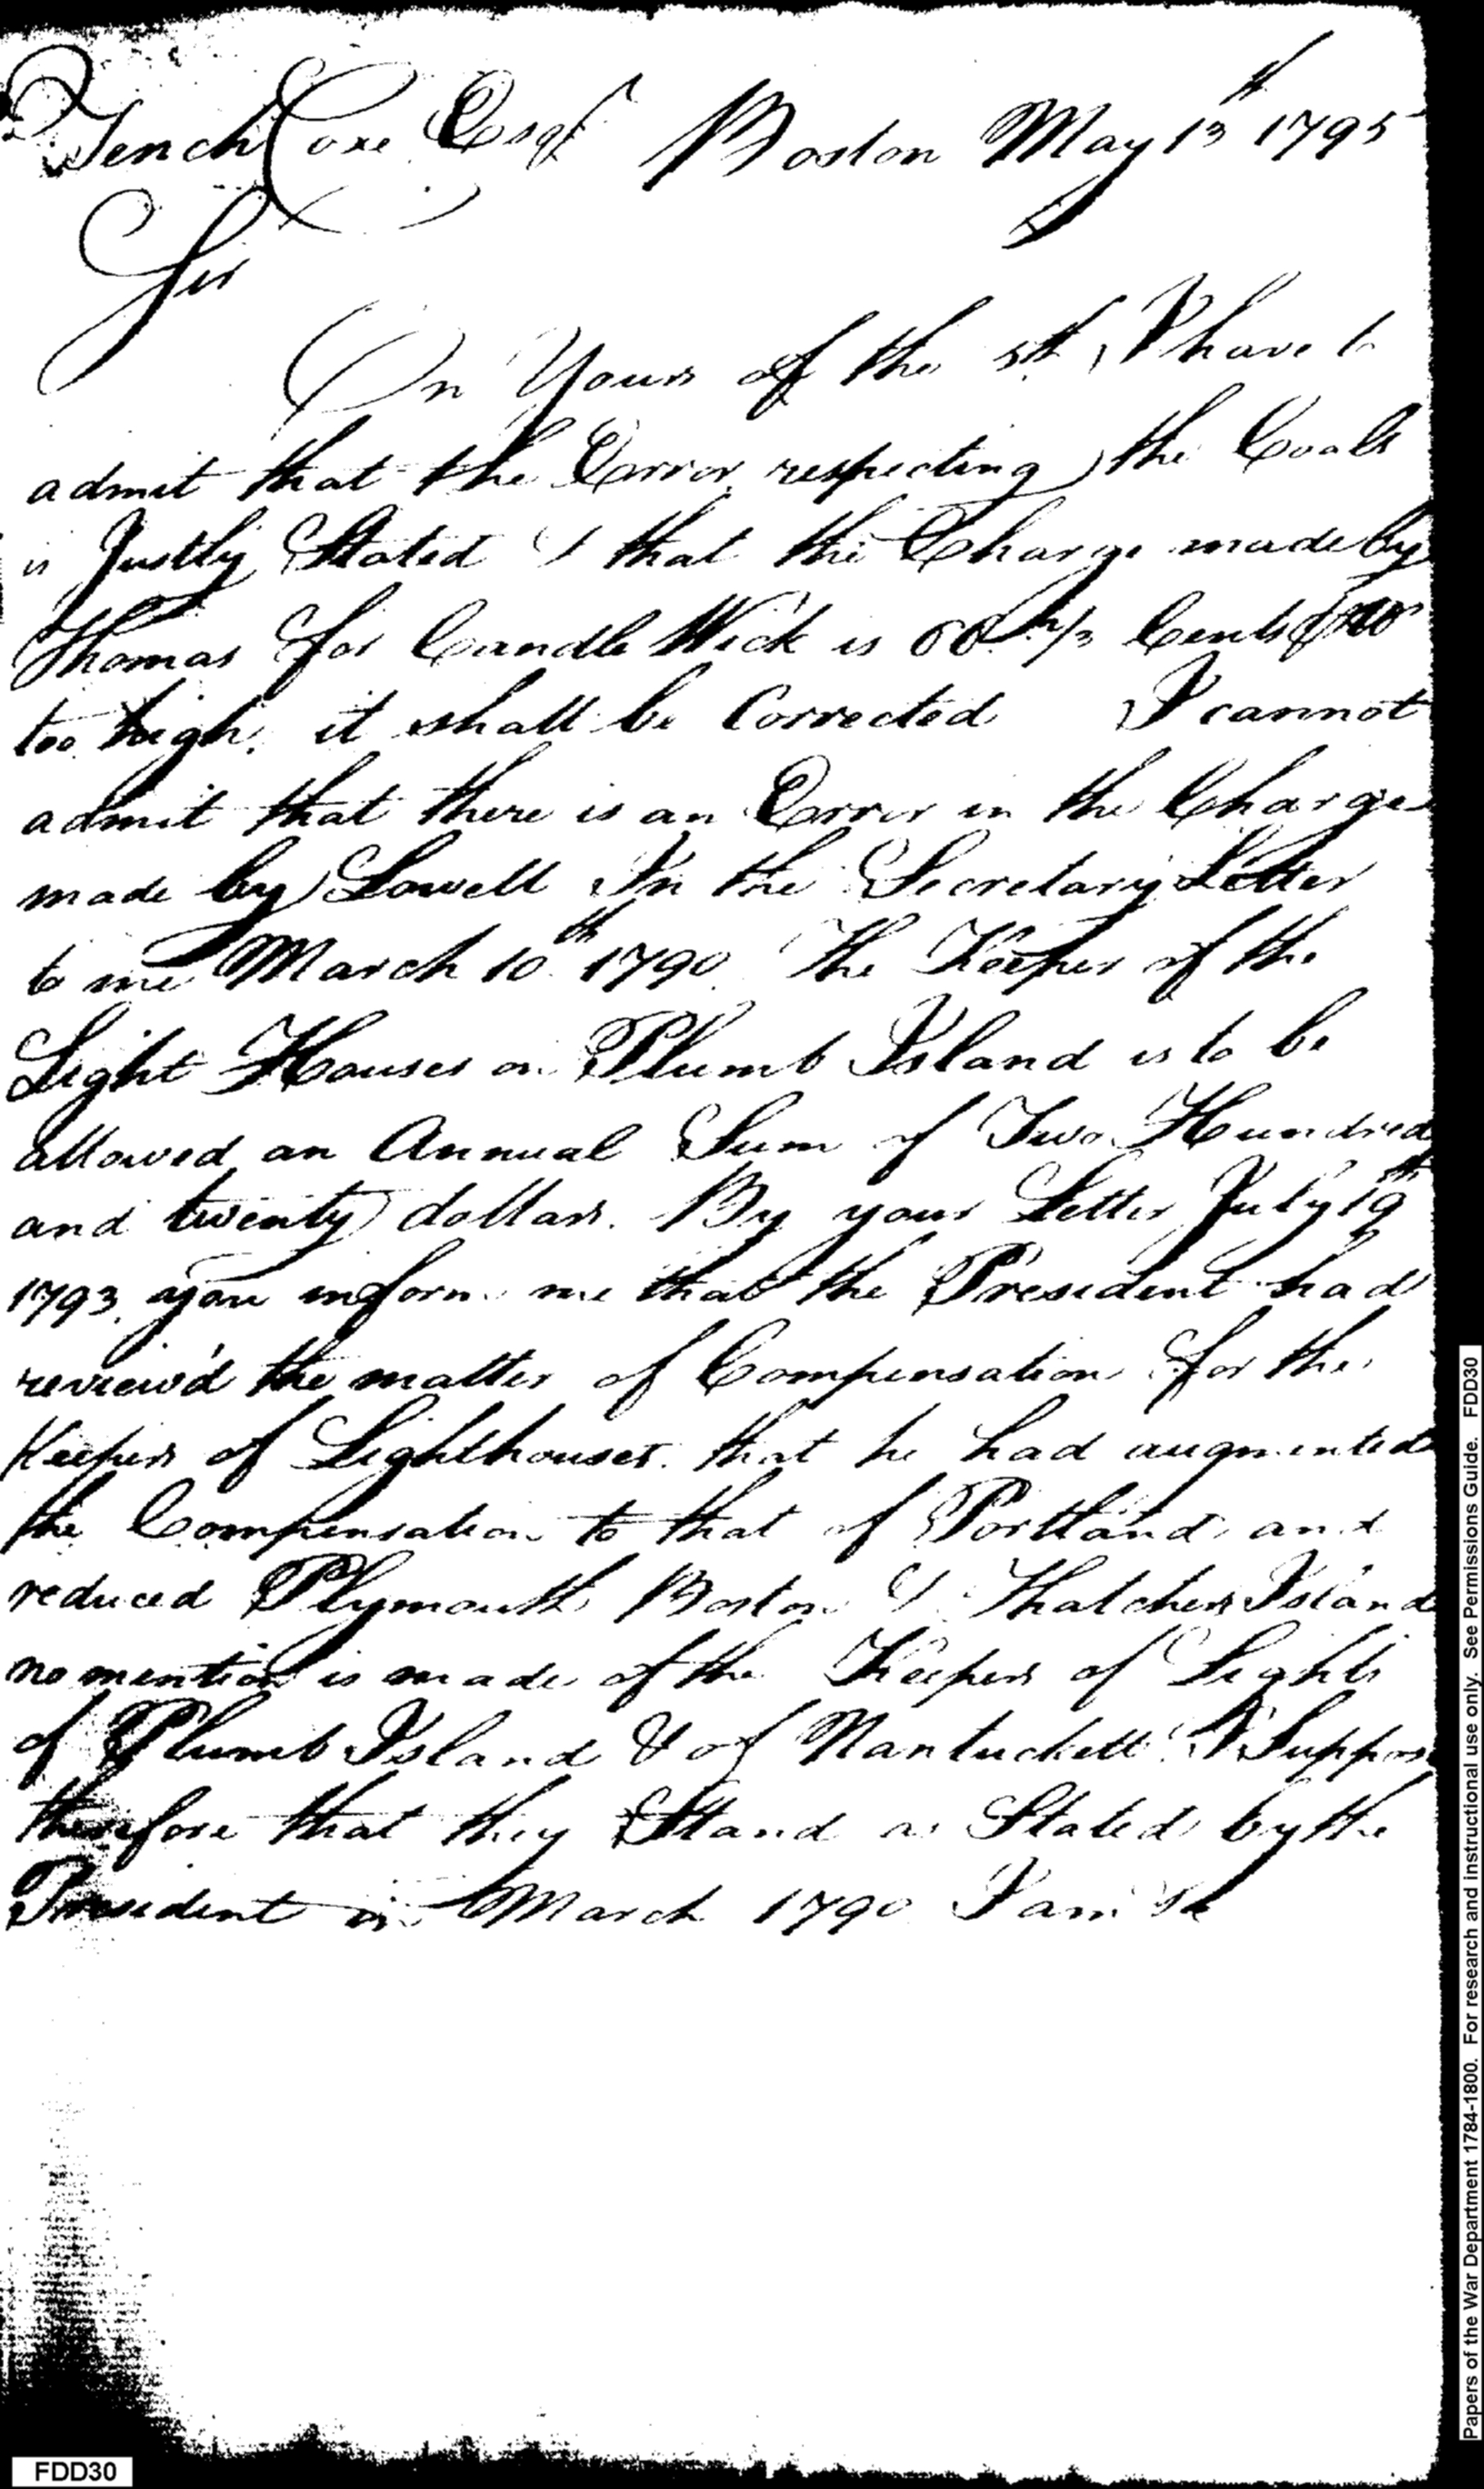 Tench Coxe Esqr Boston May 13th 1795
Sir
On Yours of the 5th, I have to
admit that the Error respecting the Coals
is Justly Stated & that the Charge made by
Thomas for Candle Wick is Cents
too high, it shall be Corrected I cannot
admit that there is an Error in the Charge
made by Lowell In the Secretary Letter
to me March 10th 1790. The Keeper of the
Light Houses on Plumb Island is to be
allowed an Annual Sum of Two Hundred
and twenty dollars. By your Letter July 19th
1793, you inform me that the President had
review'd the matter of Compensation for the
Keepers of Lighthouses. that he had augmented
the Compensation to that of Portland and
reduced Plymouth Boston & Thatchers Island
no mention is made of the Keepers of Lights
of Plumb Island & of Nantuckett I Suppose
therefore that they Stand as Stated by the
President in March 1790 I am
FDD30
Papers of the War Department 1784-1800. For research and instructional use only. See Permissions Guide. FDD30